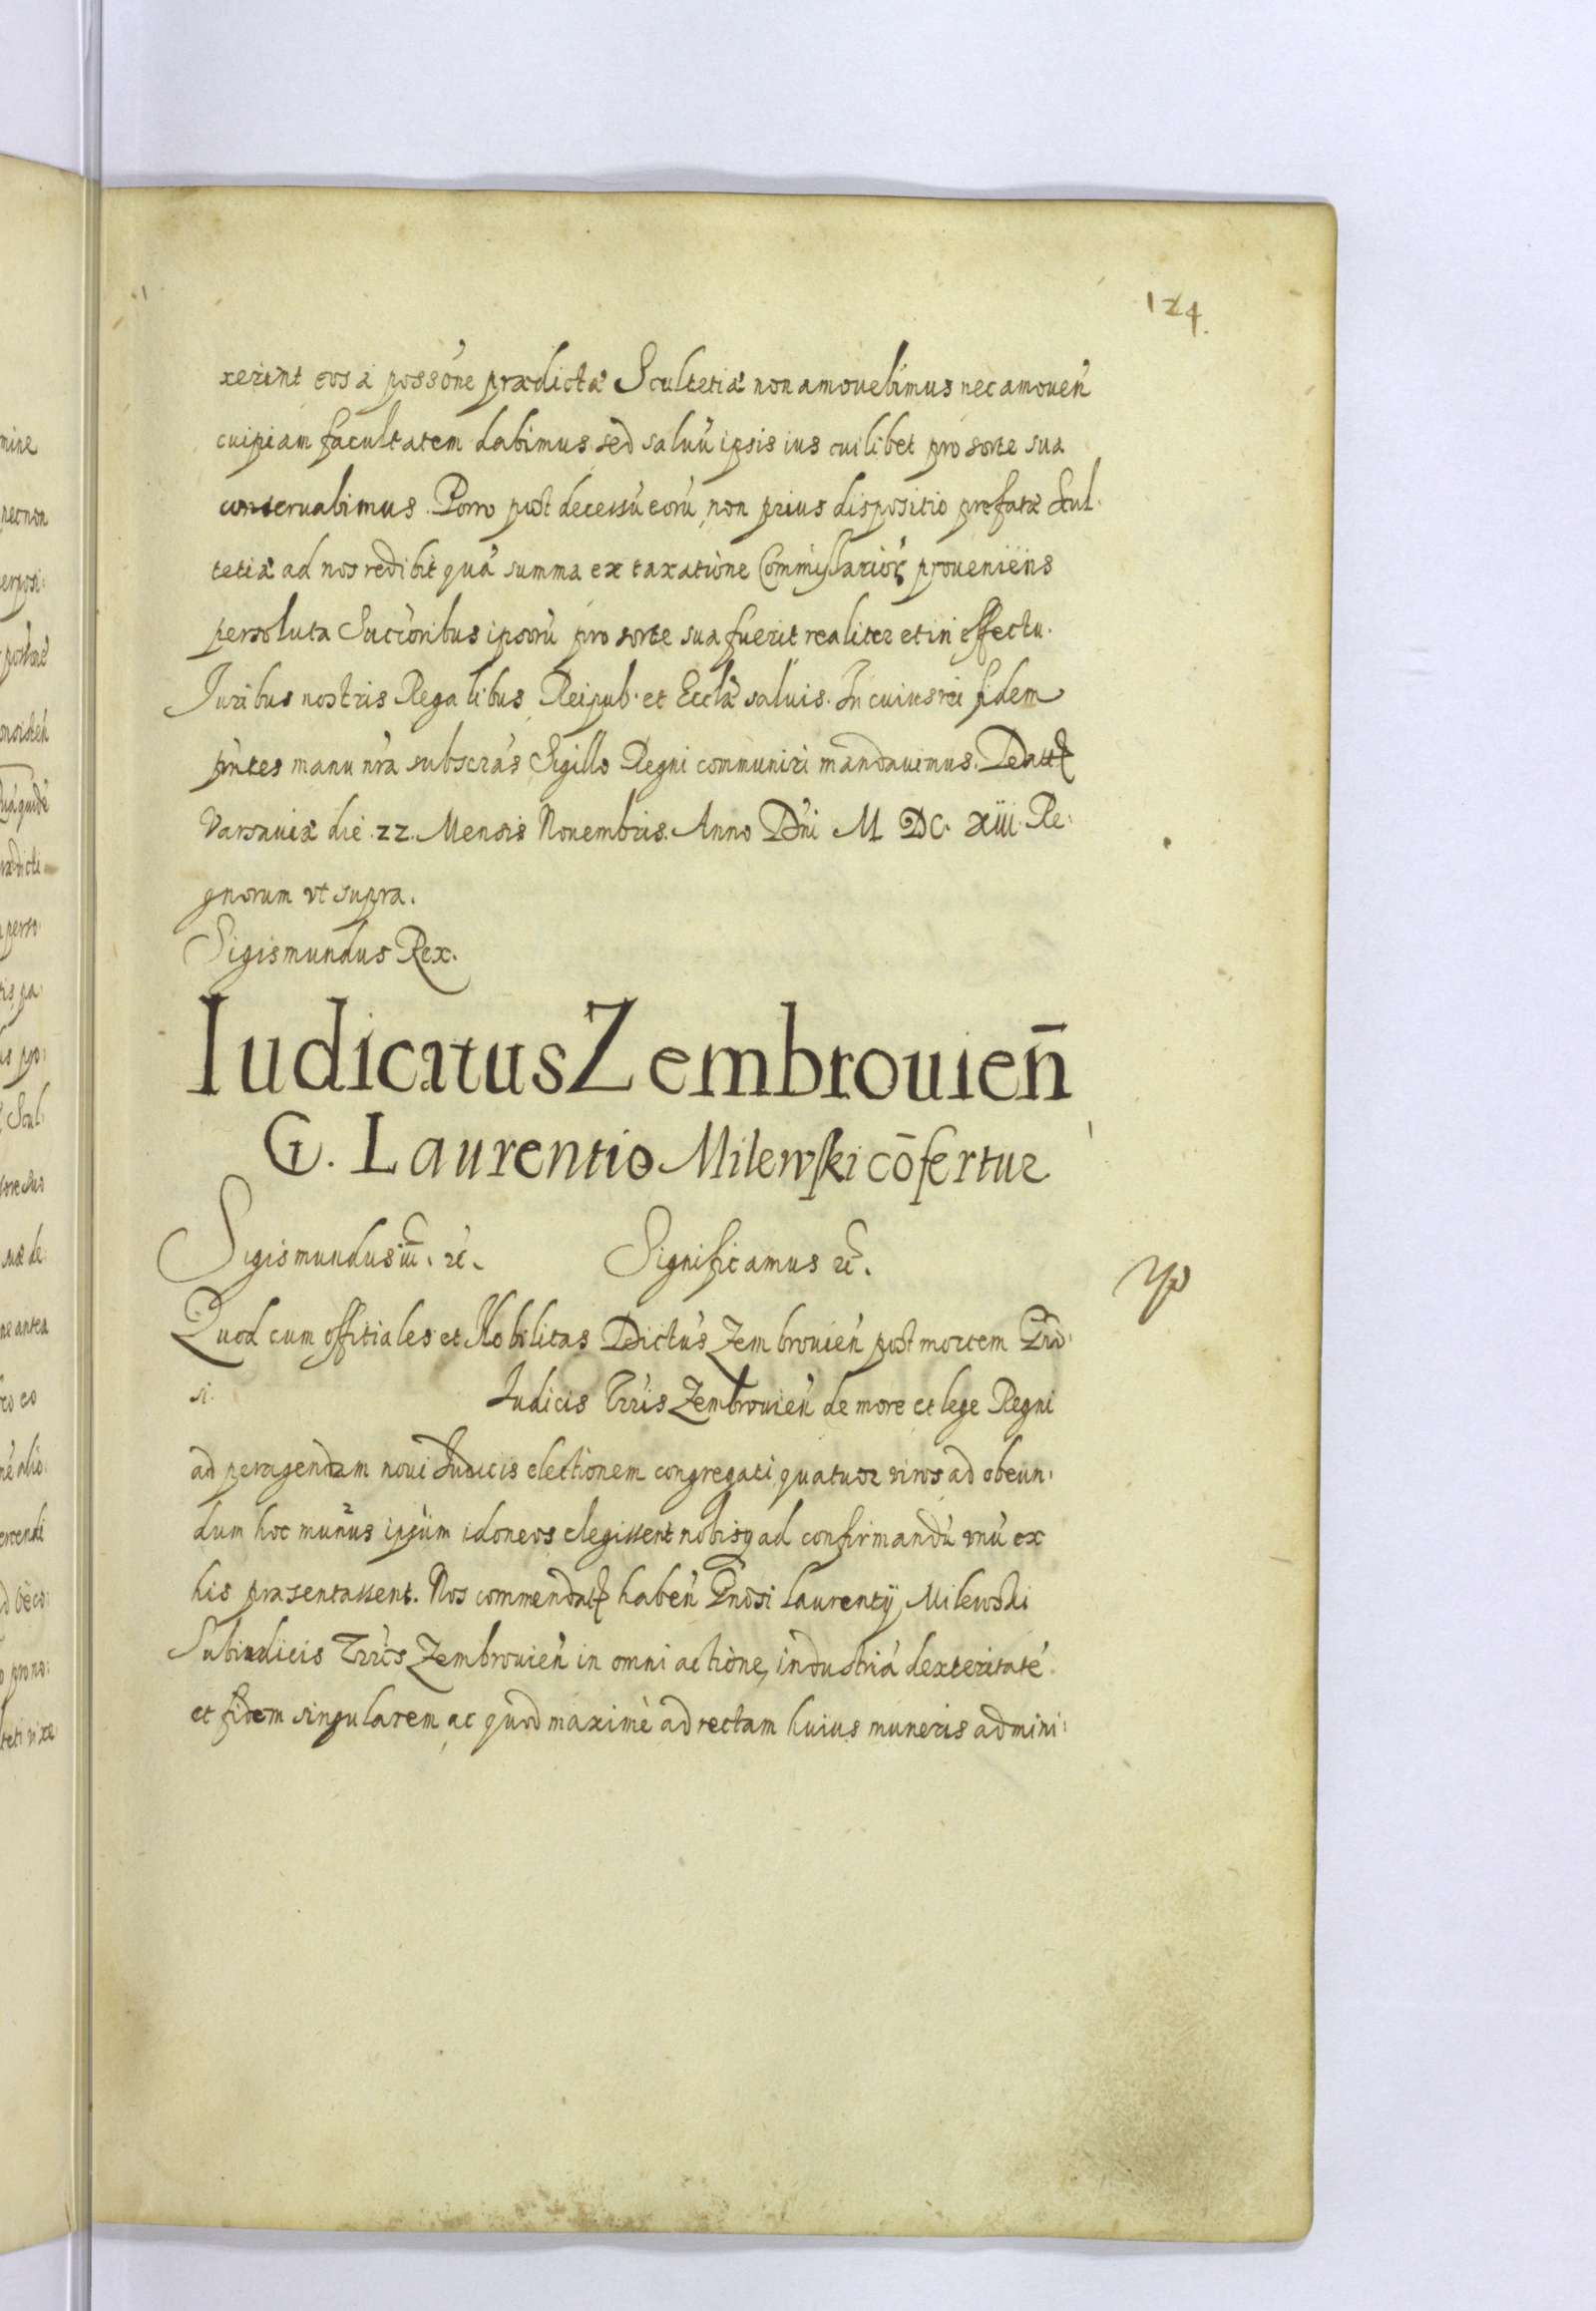 124.
xerint eos à possóne prædictæ Scultetiæ non amovebimus nec amoveń
cuipiam facultatem dabimus sed salvū ipsis ius cuilibet pro sorte sua
conservabimus. Porro post decessū eorū, non prius dispositio præfatæ Scul:
tetiæ ad nos redibit quā summa ex taxatione Commissarioꝝ proveniens
persoluta Succōribus ipsorū pro sorte sua fuerit realiter et in effectu.
Juribus nostris Regalibus Reipub. et Ecclæ salvis. In cuius rei fidem
pn̄tes manu nr̄a subscr̄as Sigillo Regni communiri mandavimus. Datt
Varsaviæ die .22. Mensis Novembris. Anno Dn̄i M DC. XIII. Re:
gnorum vt supra.
Sigismundus Rex.
Iudicatus Zembrouien̄
G. Laurentio Milewski cōfertur
Sigismundus iii. &c. Significamus &c.
Quod cum offitiales et Nobilitas Dictūs Zembrouień post mortem Gn̄o:
si. Iudicis Tr̄ris Zembrouień de more et lege Regni
ad peragendam novi Iudicis electionem congregati, quatuor viros ad obeun:
dum hoc munus ipsum idoneos elegissent nobisq ad confirmandū vnū ex
his præsentassent. Nos commendatt habeń Gn̄osi Laurentij Milewski
Subiudicis Tr̄ris Zembrouień in omni actione, industriā dexteritatē
et fidem singularem, ac quod maximè ad rectam huius muneris admini: